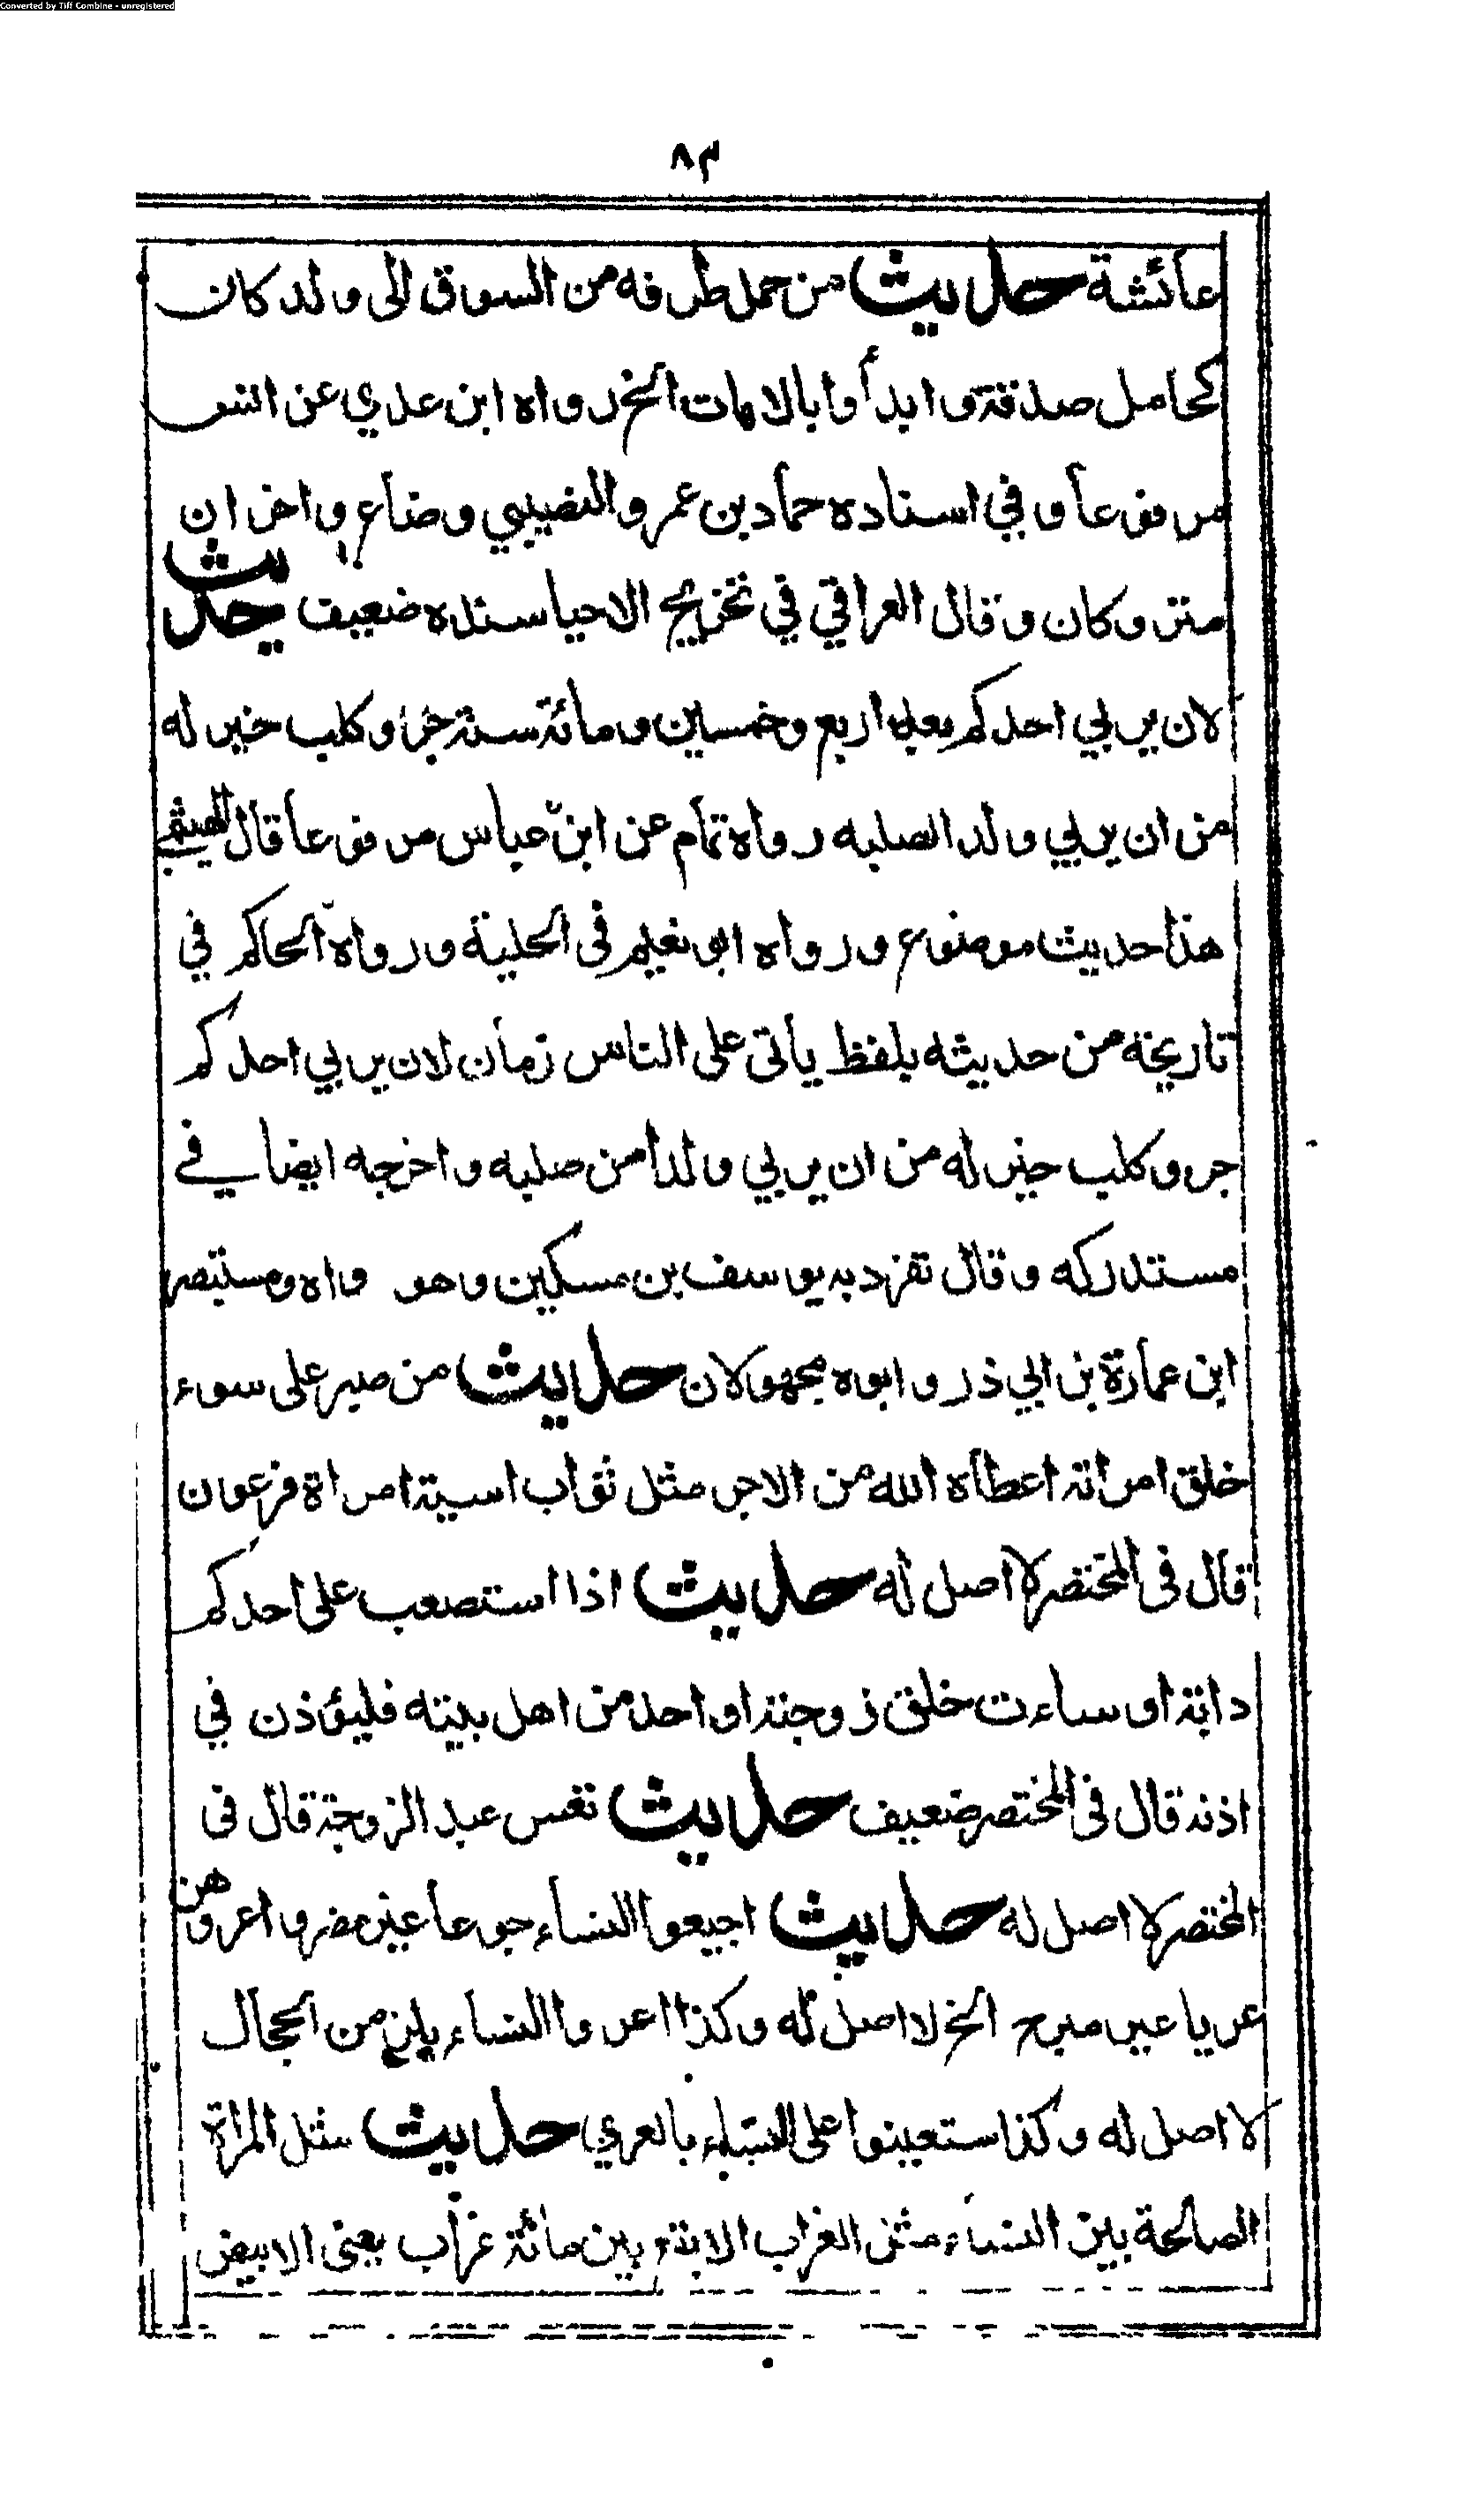 Converted by Tiff Combine - unregistered
٨٢
عائشة حديث من حمل طرفه من السوق الى ولد كان
كحامل صدقة وابدأوا بالاناث الخ رواه ابن عدي عن انس
مرفوعا وفي اسناده حماد بن عمرو النصيبي وضاع واخران
متروكان وقال العراقي في تخريج الاحيا سنده ضعيف حديث
لان يربي احدكم بعد اربع وخمسين ومائة سنة جرو كلب خير له
من ان يربي ولد الصلبه رواه تمام عن ابن عباس مرفوعا قال الهيثمي
هذا حديث موضوع ورواه ابو نعيم فى الحلية ورواه الحاكم في
تاريخه من حديثه بلفظ يأتى على الناس زمان لان يربي احدكم
جرو كلب خير له من ان يربي ولدا من صلبه واخرجه ايضا في
مستدركه وقال تفرد به يوسف بن مسكين وهو واه ومستبصر
ابن عمارة بن ابي ذر وابوه مجهولان حديث من صبر على سوء
خلق امراته اعطاه الله من الاجر مثل ثواب اسية امراة فرعون
قال فى المختصر لا اصل له حديث اذا استصعب على احدكم
دابته او ساءت خلق زوجته او احد من اهل بيته فليؤذن في
اذنه قال فى المختصر ضعيف حديث تعس عبد الزوجة قال فى
المختصر لا اصل له حديث اجيعوا النساء جوعا غير مضر واعروهن
عريا غير مبرح الخ لا اصل له وكذا اعروا النساء يلزمن الحجال
لا اصل له وكذا استعينوا على النساء بالعري حديث مثل المراة
الصالحة بين النساء مثل الغراب الابقع بين مائة غراب يعنى الابيض